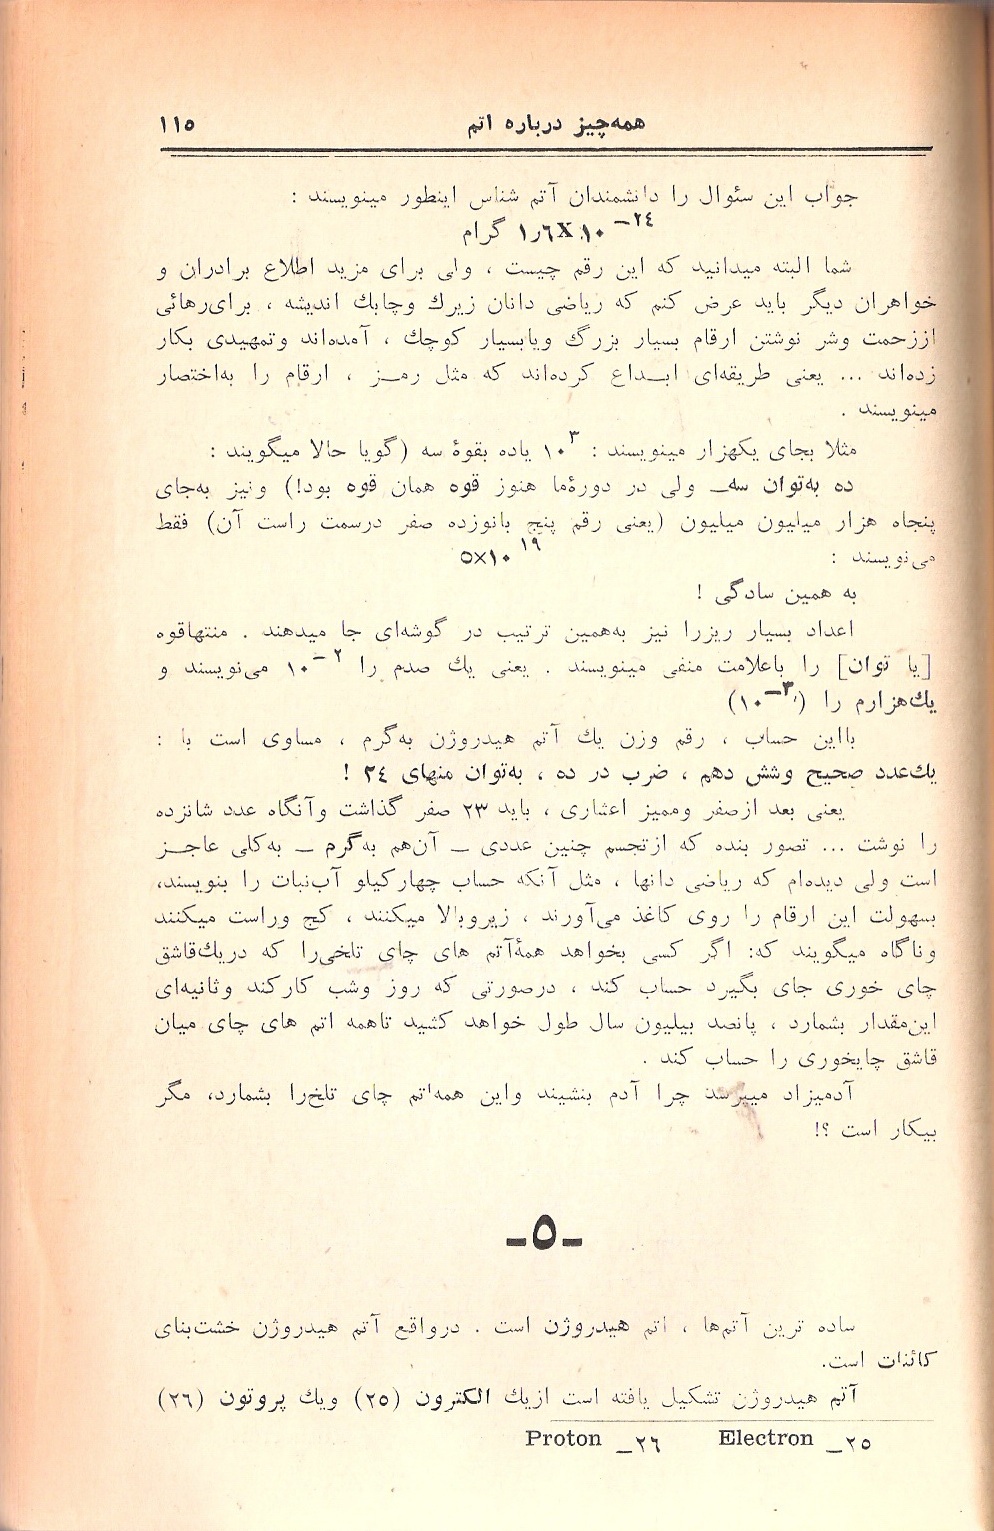 همه‌چیز درباره اتم ۱۱۵
جواب این سئوال را دانشمندان آتم شناس اینطور مینویسند :
۱ر۶X۱۰−۲۴ گرام
شما البته میدانید که این رقم چیست ، ولی برای مزید اطلاع برادران و
خواهران دیگر باید عرض کنم که ریاضی دانان زیرك وچابك اندیشه ، برای‌رهائی
اززحمت وشر نوشتن ارقام بسیار بزرگ ویابسیار کوچك ، آمده‌اند وتمهیدی بکار
زده‌اند ... یعنی طریقه‌ای ابـداع کرده‌اند که مثل رمـز ، ارقام را به‌اختصار
مینویسند .
مثلا بجای یکهزار مینویسند : ۱۰۳ یاده بقوهٔ سه (گویا حالا میگویند :
ده به‌توان سه‌ـ ولی در دورهٔ‌ما هنوز قوه همان قوه بود!) ونیز به‌جای
پنجاه هزار میلیون میلیون (یعنی رقم پنج بانوزده صفر درسمت راست آن) فقط
می‌نویسند : ۵×۱۰۱۹
به همین سادگی !
اعداد بسیار ریزرا نیز به‌همین ترتیب در گوشه‌ای جا میدهند . منتهاقوه
[یا توان] را باعلامت منفی مینویسند . یعنی یك صدم را ۱۰−۲ می‌نویسند و
یك‌هزارم را (۱۰−۳)
بااین حساب ، رقم وزن یك آتم هیدروژن به‌گرم ، مساوی است با :
یك‌عدد صحیح وشش دهم ، ضرب در ده ، به‌توان منهای ۲۴ !
یعنی بعد ازصفر وممیز اعشاری ، باید ۲۳ صفر گذاشت وآنگاه عدد شانزده
را نوشت ... تصور بنده که ازتجسم چنین عددی ـ آن‌هم به‌گرم ـ به‌کلی عاجـز
است ولی دیده‌ام که ریاضی دانها ، مثل آنکه حساب چهارکیلو آب‌نبات را بنویسند،
بسهولت این ارقام را روی کاغذ می‌آورند ، زیروبالا میکنند ، کج وراست میکنند
وناگاه میگویند که: اگر کسی بخواهد همهٔ‌آتم های چای تلخی‌را که دریك‌قاشق
چای خوری جای بگیرد حساب کند ، درصورتی که روز وشب کارکند وثانیه‌ای
این‌مقدار بشمارد ، پانصد بیلیون سال طول خواهد کشید تاهمه اتم های چای میان
قاشق چایخوری را حساب کند .
آدمیزاد میپرسد چرا آدم بنشیند واین همه‌اتم چای تلخ‌را بشمارد، مگر
بیکار است ؟!
-۵-
ساده ترین آتم‌ها ، اتم هیدروژن است . درواقع آتم هیدروژن خشت‌بنای
کائنات است.
آتم هیدروژن تشکیل یافته است ازیك الکترون (۲۵) ویك پروتون (۲۶)
۲۵ـ Electron ۲۶ـ Proton